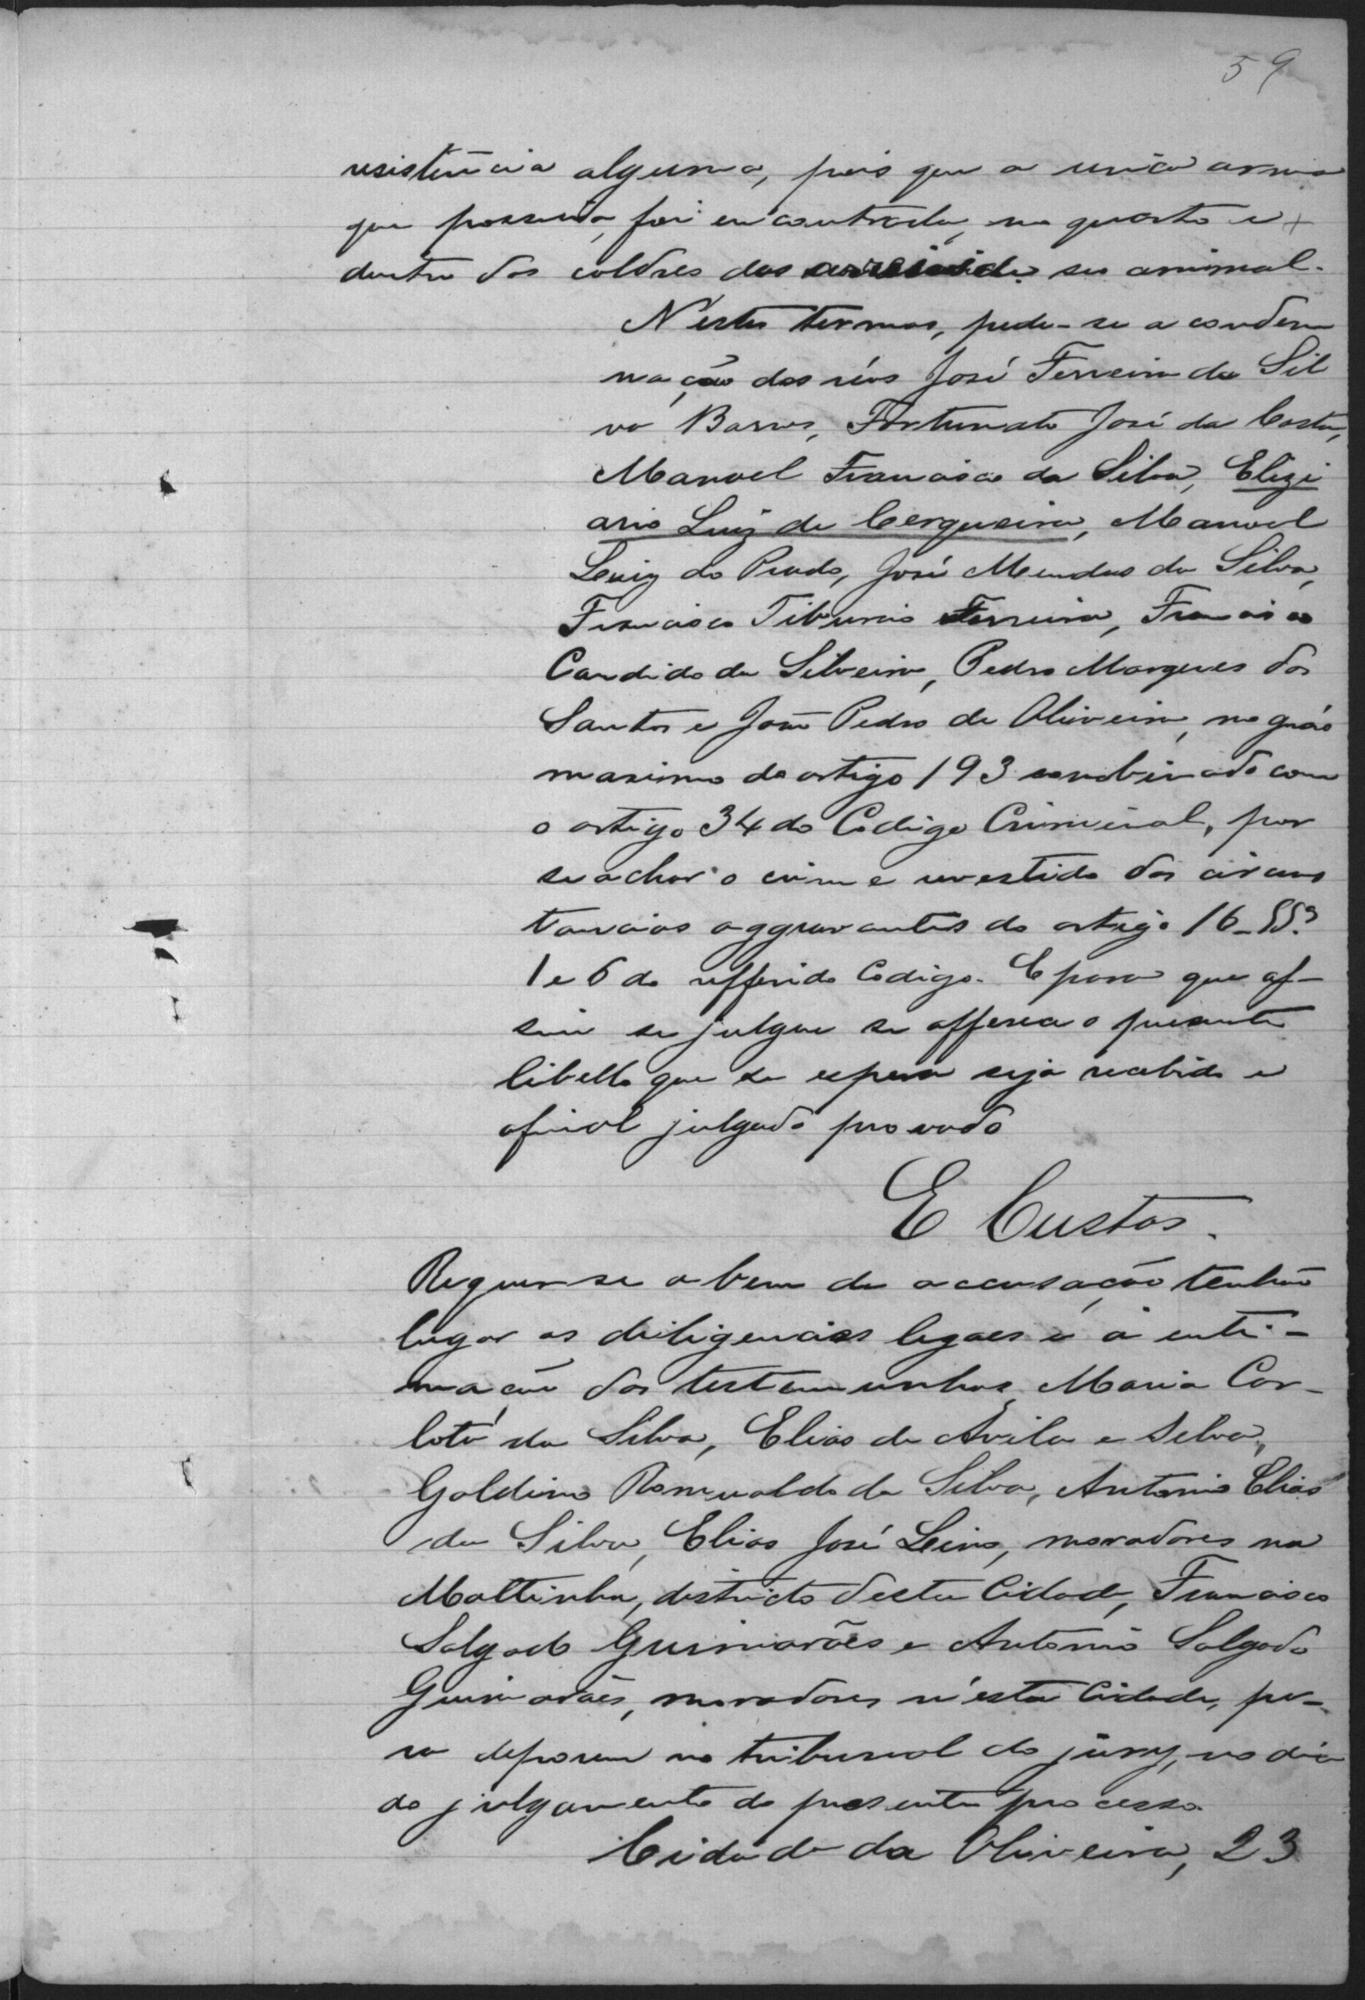 59
resistencia alguma, pois que a unica arma
que possuia, foi encontrada, no quarto e
dentro dos coldres dos arreios de seu animal.
N'estes termos, pede-se a condem
nação dos réos José Ferreira da Sil
va Barros, Fortunato José da Costa,
Manoel Francisco da Silva, Elizi
ario Luiz de Cerqueira, Manoel
Luiz do Prado, José Mendes da Silva,
Francisco Tiburcio Ferreira, Francisco
Candido da Silveira, Pedro Marques dos
Santos e João Pedro de Oliveira, no gráo
maximo do artigo 193 combinado com
o artigo 34 do Codigo Criminal, por
se achar o crime revestido das circuns
tancias aggravantes do artigo 16 §§
1 e 6 do refferido Codigo. E para que as-
sim se julgue se offerece o presente
libello que se espera seja recebido e
afinal julgado provado
E Custas.
Requer-se a bem da accusação tenhão
lugar as deligencias legaes e a enti-
mação das testemunhas, Maria Car-
lota da Silva, Elias de Avila e Silva,
Galdino Romualdo da Silva, Antonio Elias
da Silva, Elias José Leino, moradores na
Mattinha, districto desta Cidade, Francisco
Salgado Guimarães e Antonio Salgado
Guimarães, moradores n'esta Cidade, pa-
ra deporem no tribunal do jury, no dia
do julgamento do presente processo.
Cidade da Oliveira, 23